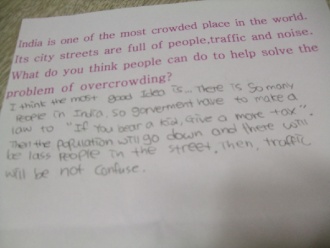 India is one of the most crowded place in the world.
Its city streets are full of people,traffic and noise.
What do you think people can do to help solve the
problem of overcrowding?
I think the most good Idea is... There is So many
People in India. So gorverment have to make a
law to "If You bear a kid, Give a more tax".
That the population will go down and there will
be lass people in the street. Then, traffic
will be not confuse.